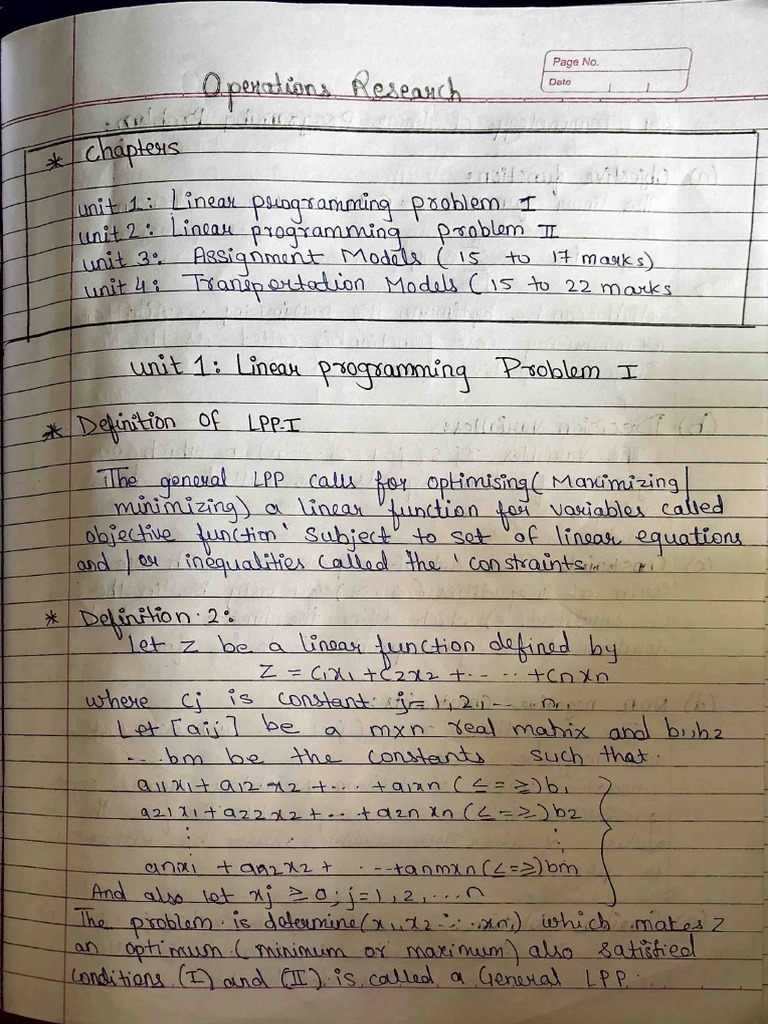 Page No.
Date
Operations Research
* Chapters
unit 1: Linear programming problem I
unit 2: Linear programming problem II
unit 3: Assignment Models (15 to 17 marks)
unit 4: Transportation Models (15 to 22 marks
Unit 1: Linear programming Problem I
* Definition of LPP-I
The general LPP calls for optimising (Maximizing/
minimizing) a linear function for variables called
objective function' subject to set of linear equations
and /or inequalities called the 'constraints.
* Definition 2:
Let Z be a linear function defined by
Z = C1x1 + C2x2 + ... ... + Cnxn
where Cj is constant j=1,2,... n.
Let [aij] be a mxn real matrix and b1, b2
... bm be the constants such that.
a11x1 + a12 x2 + ... + a1xn (≤ = ≥) b1
a21x1 + a22x2 + ... + a2n xn (≤ = ≥) b2
⋮ ⋮
anx1 + an2x2 + ... + anmxn (≤ = ≥) bm
And also let xj ≥ 0; j=1,2,...n
The problem is determine (x1, x2 ... xn) which makes Z
an optimum (minimum or maximum) also satisfied
conditions (I) and (II) is called a General LPP.